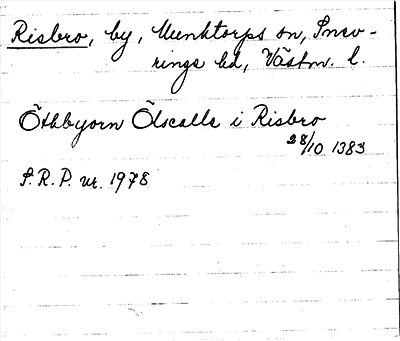 Risbro, by, Munktorps sn, Snevringe hd, Västm. l.
Õthbyorn Õlscalle i Risbro
28/10 1383
S.R.P. nr. 1978